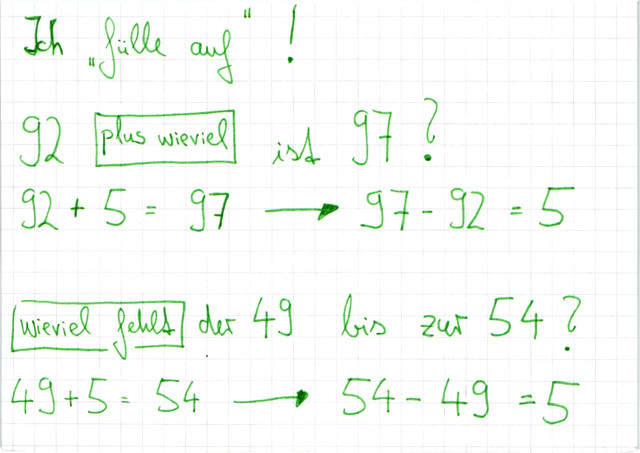 Ich „fülle auf“ !
92 plus wieviel ist 97 ?
92 + 5 = 97 → 97 - 92 = 5
wieviel fehlt der 49 bis zur 54 ?
49 + 5 = 54 → 54 - 49 = 5